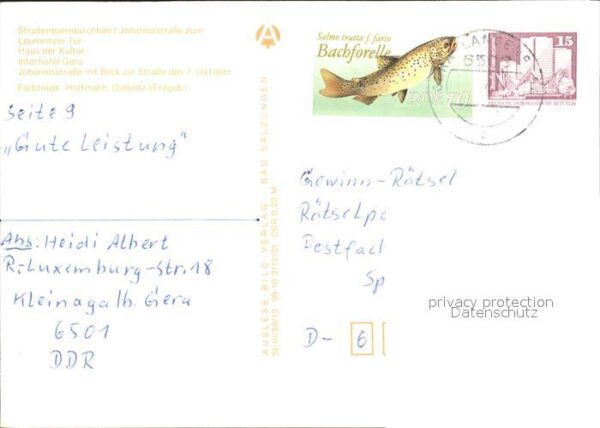 Straßenbahndurchfahrt Johannisstraße zum
Leumnitzer Tor
Haus der Kultur
Interhotel Gera
Johannisstraße mit Blick zur Straße des 7. Oktober
Farbfotos: Hoffmann, Oelsnitz (Erzgeb.)
Seite 9
„Gute Leistung"
Abs. Heidi Albert
R.-Luxemburg-Str. 18
Kleinaga lb. Gera
6501
DDR
AUSLESE-BILD-VERLAG · BAD SALZUNGEN
09 10 2112/31 DDR 0,20 M
Salmo trutta f. fario
Bachforelle
DDR 10
15
Gewinn-Rätsel
Postfach
Sp
D- 6
privacy protection
Datenschutz